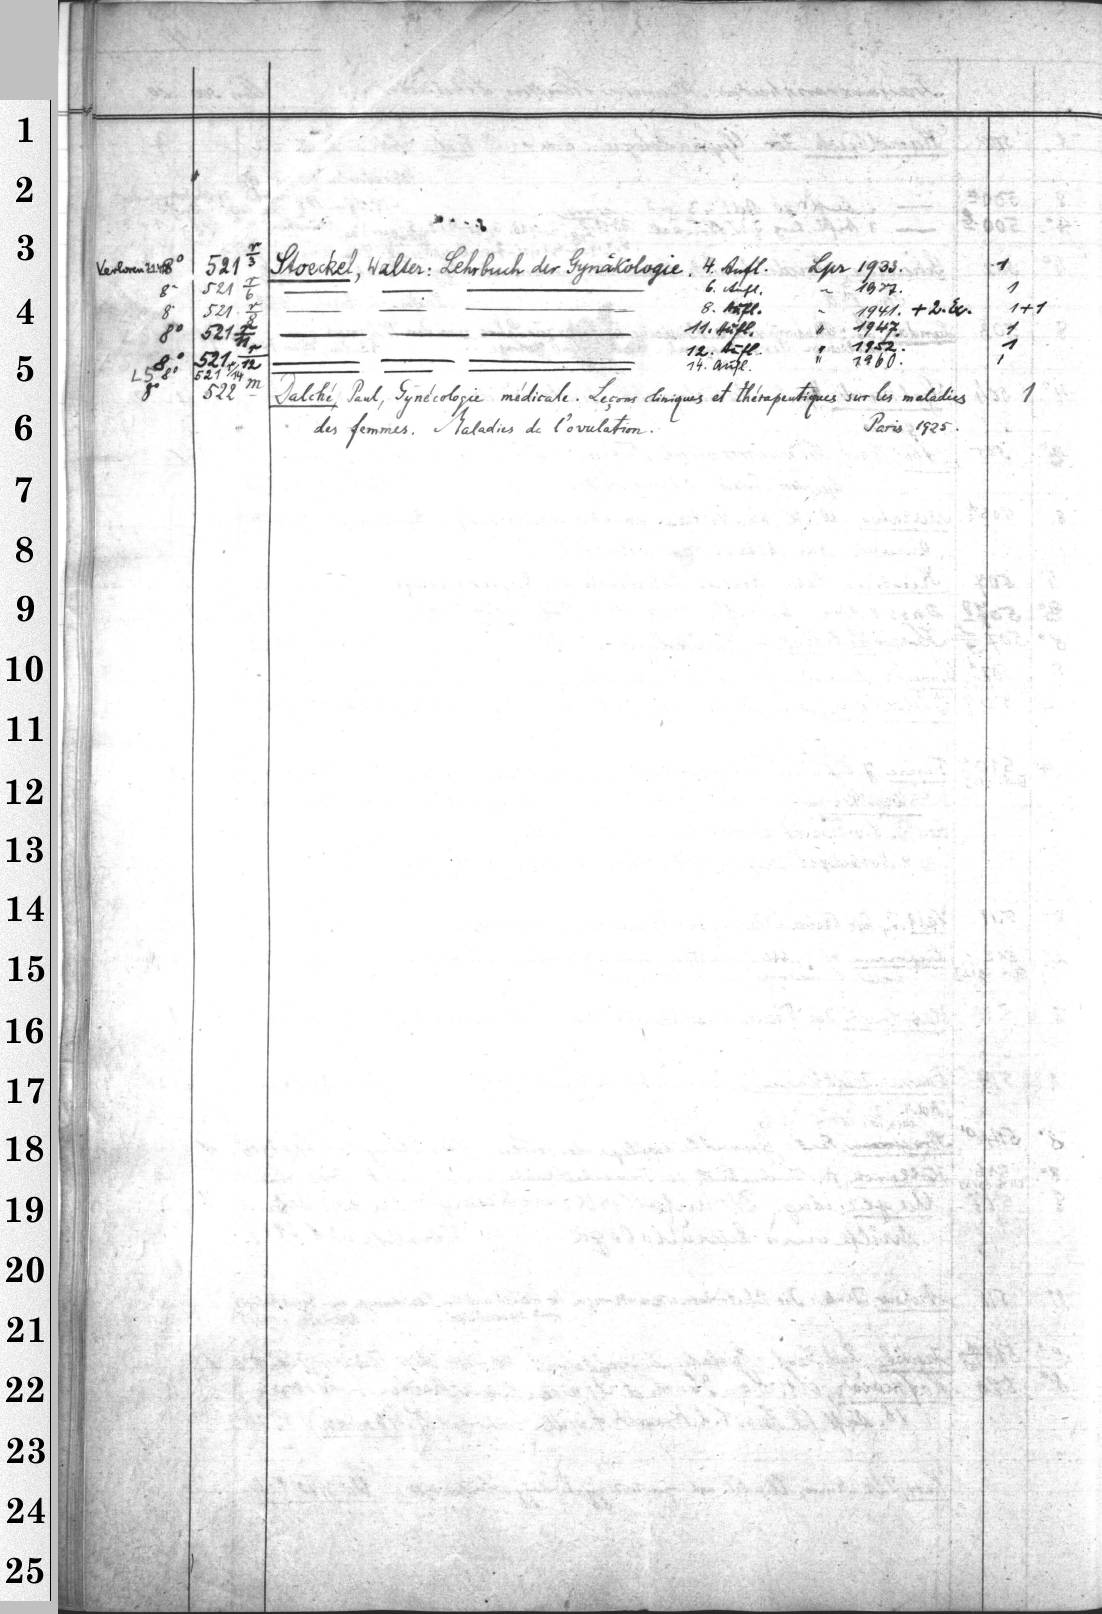 1
2
3
Verloren 8° 521 r/3 Stoeckel, Walter: Lehrbuch der Gynäkologie. 4. Aufl. Lpz 1933. 1
8° 521 r/6 — — — 6. Aufl. " 1937. 1
4
8° 521 r/8 — — — 8. Aufl. " 1941. + 2. Ex. 1+1
8° 521 r/11 — — — 11. Aufl. " 1947. 1
5
8° 521 r/12 — — — 12. Aufl. " 1952. 1
LS 8° 521 r/14 — — — 14. Aufl. " 1960. 1
8° 522 m Dalché, Paul, Gynécologie médicale. Leçons cliniques et thérapeutiques sur les maladies 1
6
des femmes. Maladies de l'ovulation. Paris 1925.
7
8
9
10
11
12
13
14
15
16
17
18
19
20
21
22
23
24
25